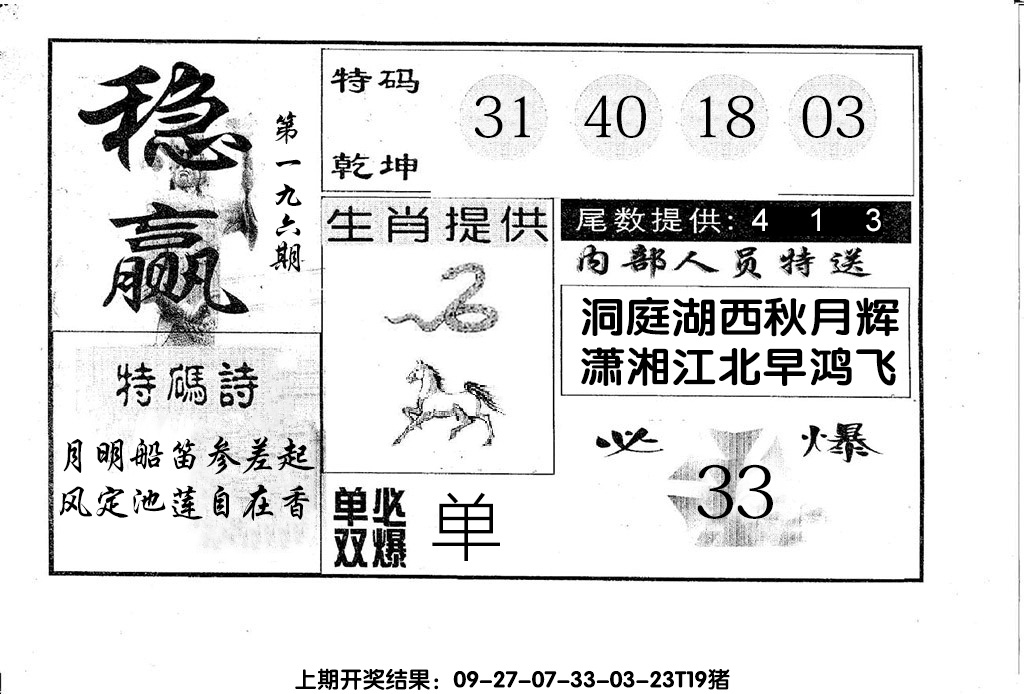 稳赢
第一九六期
特码
乾坤
31 40 18 03
生肖提供
尾数提供: 4 1 3
内部人员特送
洞庭湖西秋月辉
潇湘江北早鸿飞
特碼詩
月明船笛参差起
风定池莲自在香
必爆
33
单双
必爆
单
上期开奖结果：09-27-07-33-03-23T19猪